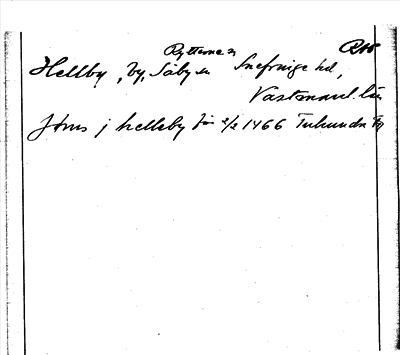 Rytterne sn
Hellby, by, Säby sn Snefringe hd,
Västmanl. län
Jöns j helleby för 2/2 1466 Tuhundra